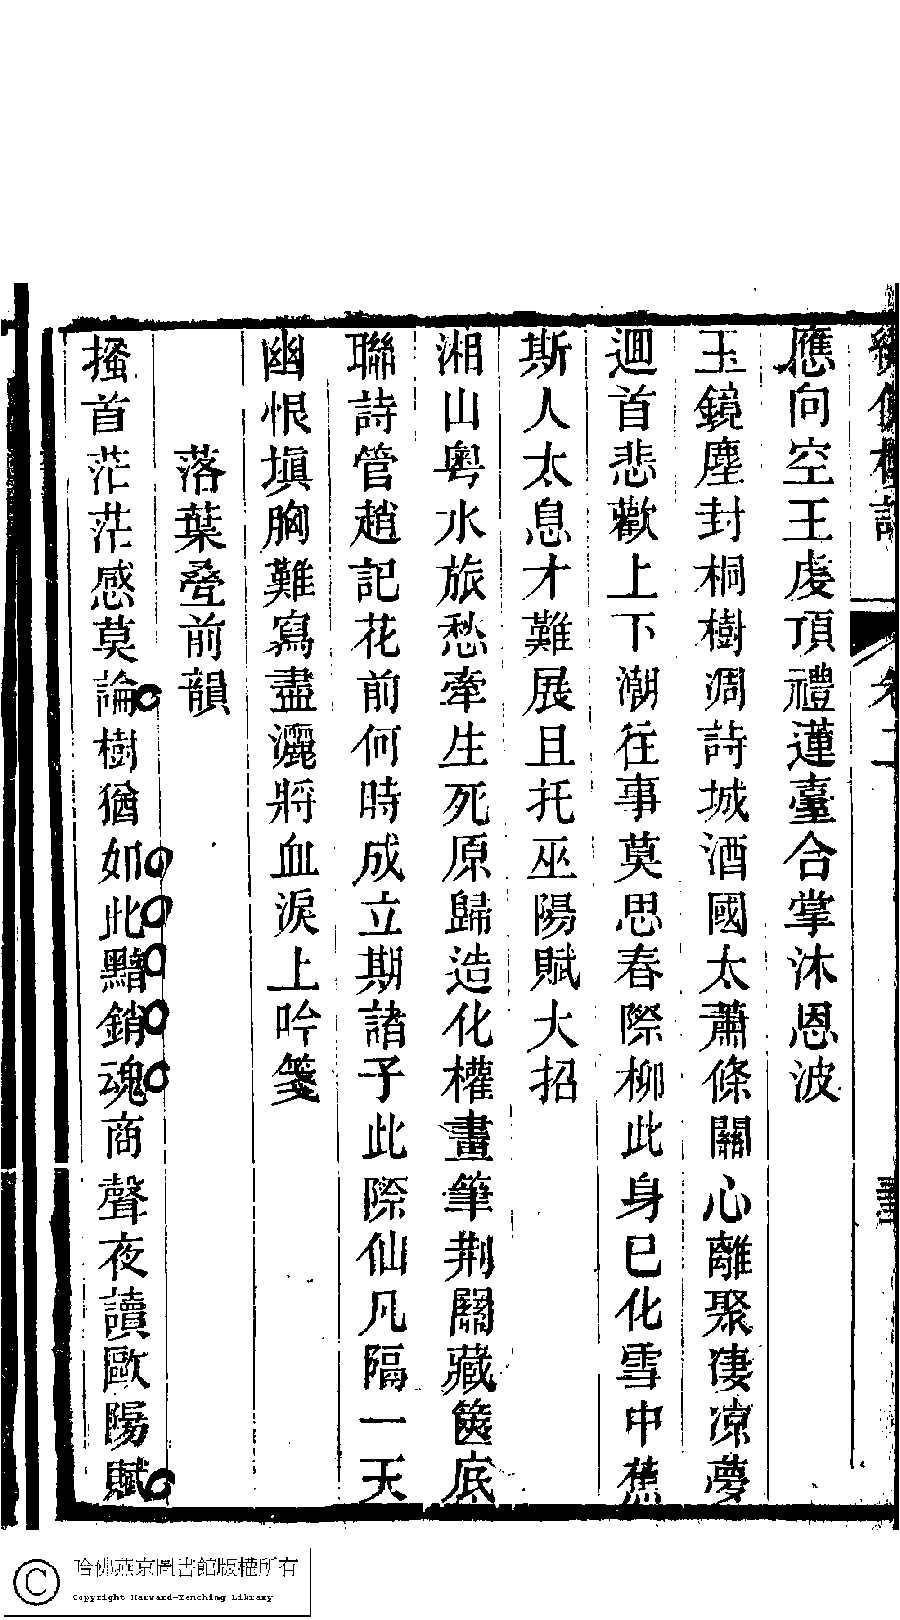 應向空王虔頂禮蓮臺合掌沐恩波
玉鏡塵封桐樹凋詩城酒國太蕭條關心離聚淒凉夢
迴首悲歡上下潮往事莫思春際柳此身已化雪中蕉
斯人太息才難展且托巫陽賦大招
湘山粵水旅愁牽生死原歸造化權畫筆荆關藏篋底
聯詩管趙記花前何時成立期諸子此際仙凡隔一天
幽恨塡胸難寫盡灑將血淚上吟箋
落葉疊前韻
搔首茫茫感莫論樹猶如此黯銷魂商聲夜讀歐陽賦
哈佛燕京圖書館版權所有
Copyright Harvard-Yenching Library